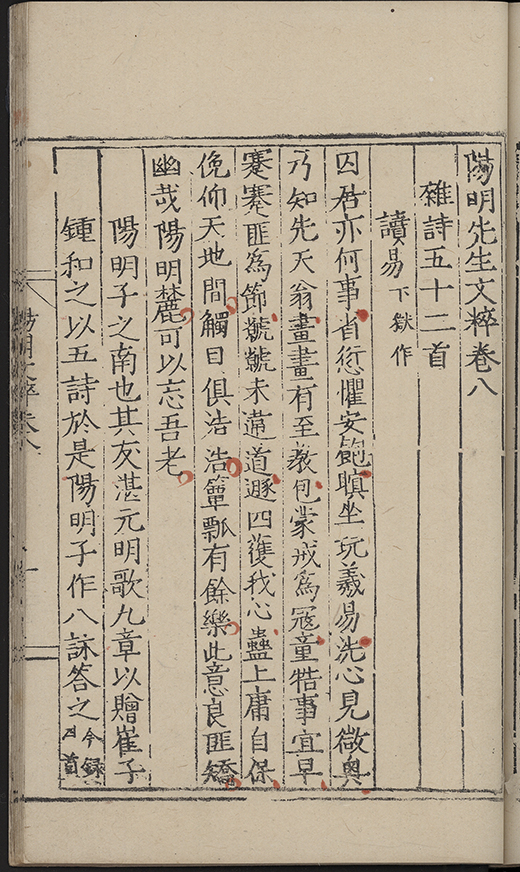 陽明先生文粹卷八
雜詩五十二首
讀易下獄作
囚居亦何事省愆懼安飽瞑坐玩羲易洗心見微奧
乃知先天翁畫畫有至教包蒙戒爲寇童牿事宜早
蹇蹇匪爲節虩虩未違道遯四獲我心蠱上庸自保
俛仰天地間觸目俱浩浩簞瓢有餘樂此意良匪矯
幽哉陽明麓可以忘吾老
陽明子之南也其友湛元明歌九章以贈崔子
鍾和之以五詩於是陽明子作八詠答之今錄四首
陽明文粹卷八